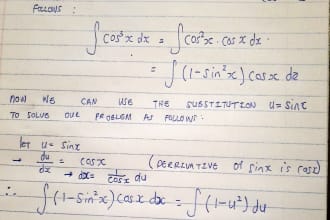 FOLLOWS :
∫ cos³x dx = ∫ cos²x . cos x dx .
= ∫ (1 - sin²x) cosx dx
NOW WE CAN USE THE SUBSTITUTION u = sinx
TO SOLVE OUR PROBLEM AS FOLLOWS :
let u = sinx
→ du/dx = cosx (DERIVATIVE OF sinx is cosx)
→ dx = 1/cosx du
∴ ∫ (1 - sin²x) cosx dx = ∫ (1 - u²) du